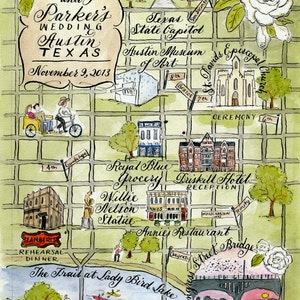 and
Parker's
WEDDING
Austin
TEXAS
November 9, 2013
Texas
State Capitol
Austin Museum
of Art
St. David's Episcopal Church
CEREMONY
7th
Royal Blue
Grocery
Driskill Hotel
RECEPTION
Willie
Nelson
Statue
Annies Restaurant
LAMBERTS
REHEARSAL
DINNER
Street Bridge
The Trail at Lady Bird Lake